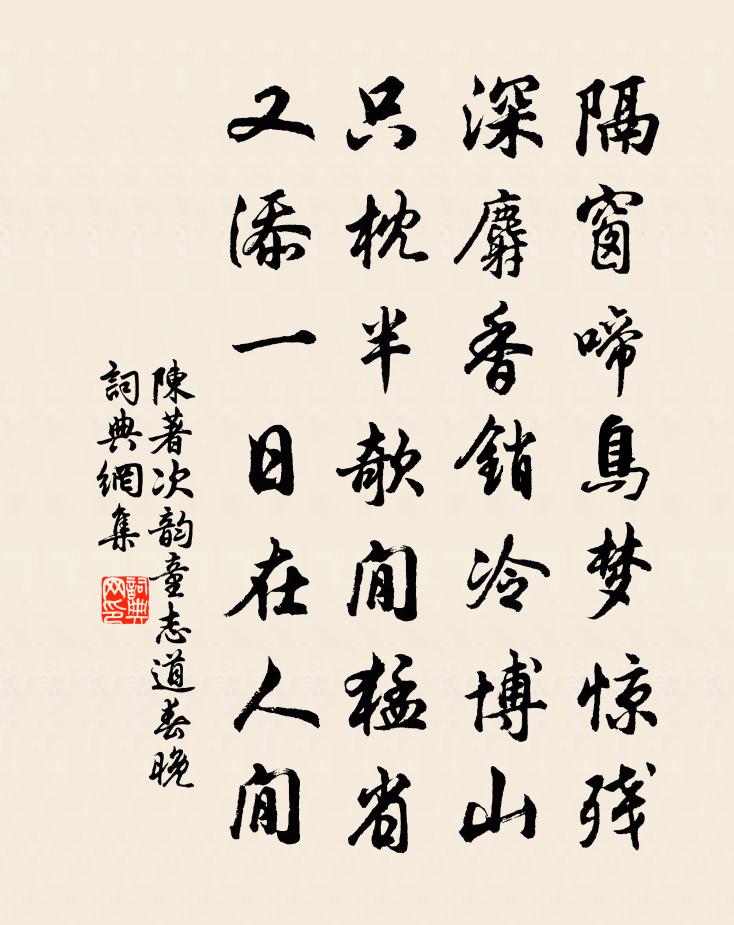 隔窗啼鳥梦惊残
深麝香銷冷博山
只枕半欹閒猛省
又添一日在人閒
陳著次韵童志道春晚
詞典網集
詞典网印